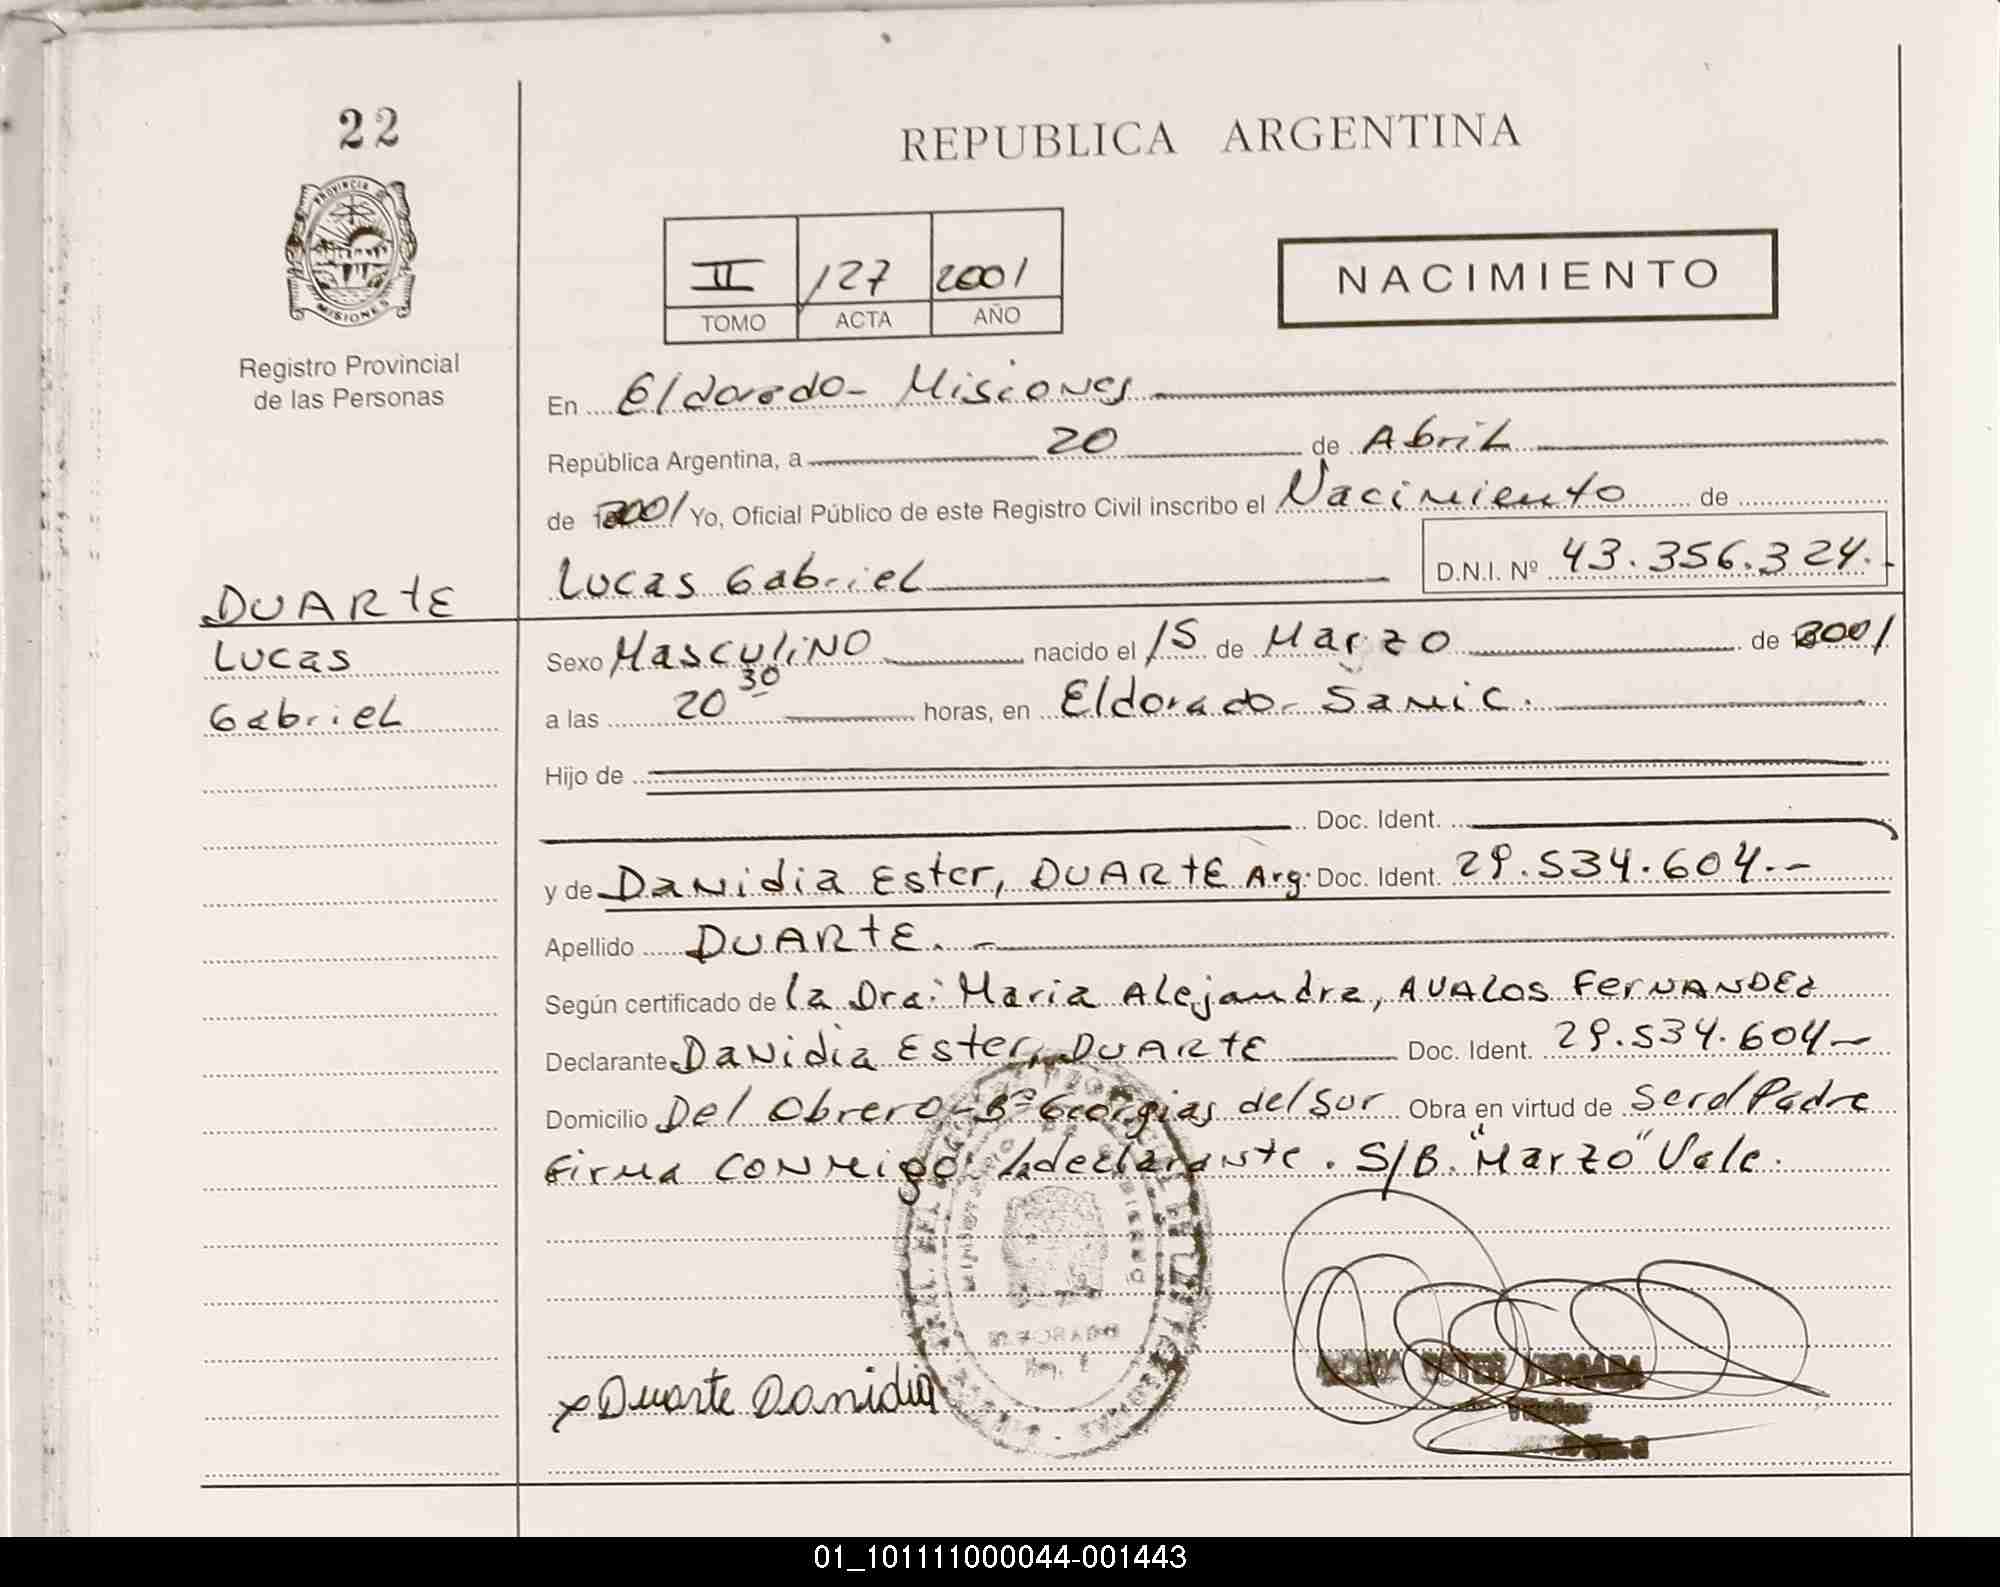 22
PROVINCIA DE
MISIONES
Registro Provincial
de las Personas
DUARTE
Lucas
Gabriel
REPUBLICA ARGENTINA
II 127 2001
TOMO ACTA AÑO
NACIMIENTO
En Eldorado - Misiones
República Argentina, a 20 de Abril
de 2001 Yo, Oficial Público de este Registro Civil inscribo el Nacimiento de
Lucas Gabriel D.N.I. Nº 43.356.324.-
Sexo Masculino nacido el 15 de Marzo de 2001
a las 20 30 horas, en Eldorado - Samic.
Hijo de
Doc. Ident.
y de Danidia Ester, DUARTE Arg. Doc. Ident. 29.534.604.-
Apellido DUARTE.-
Según certificado de la Dra: Maria Alejandra, AVALOS FERNANDEZ
Declarante Danidia Ester, DUARTE Doc. Ident. 29.534.604-
Domicilio Del Obrero - Bº Georgias del Sur Obra en virtud de Ser el Padre
Firma conmigo la declarante. S/B. "Marzo" Vale.
x Duarte Danidia
01_101111000044-001443